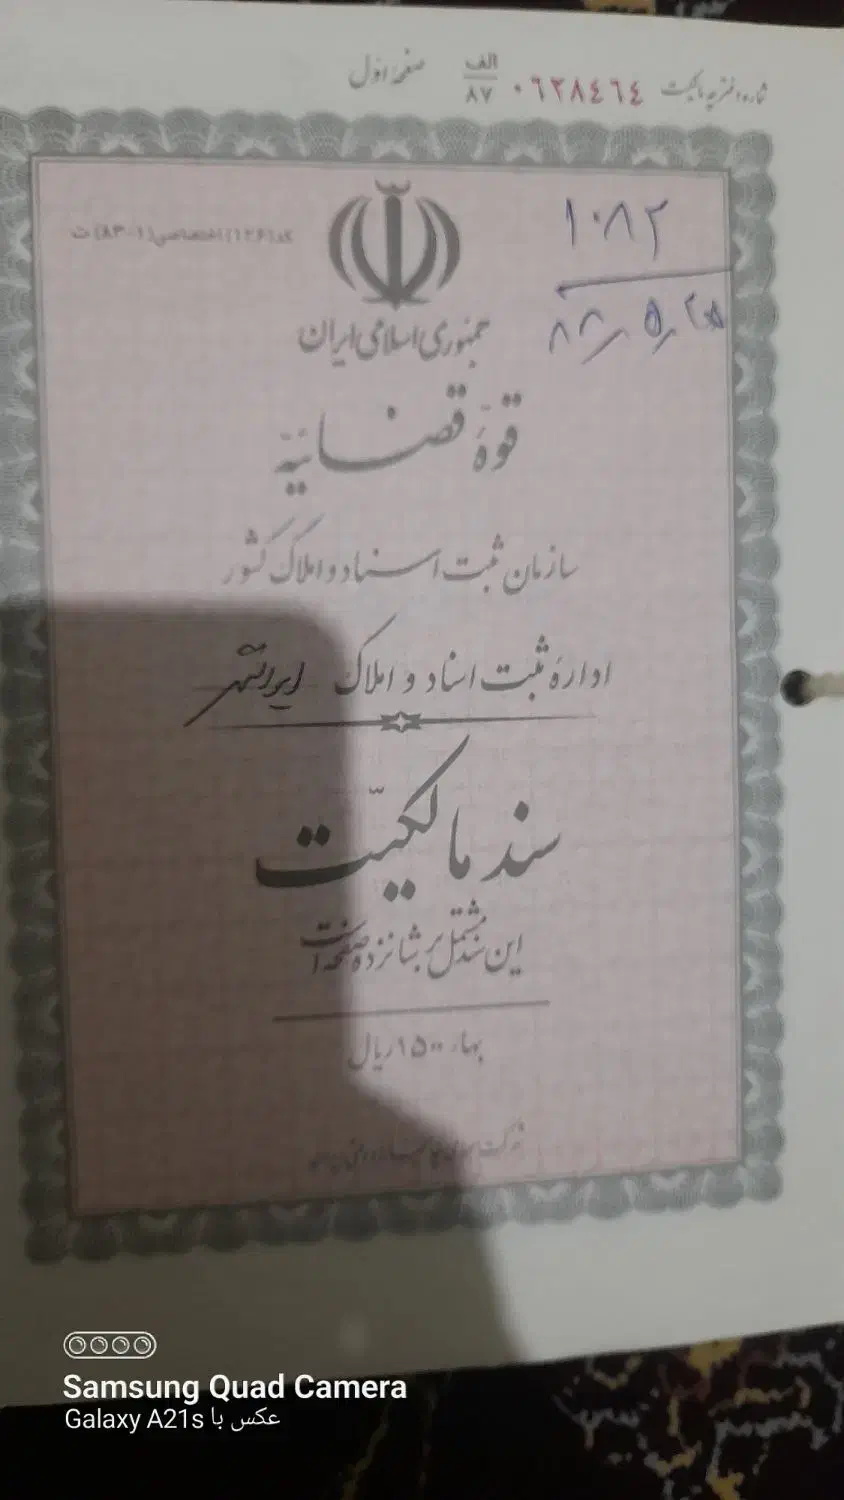 شماره دفترچه مالکیت ۰٦۲۸٤٦٤ الف/۸۷ صفحه اول
۱۰۸۲
۸۸/۵/۲۵
کد(۱۲۶) اختصاصی(۱-۸۳) ث
جمهوری اسلامی ایران
قوهٔ قضائیه
سازمان ثبت اسناد و املاک کشور
ادارهٔ ثبت اسناد و املاک ایرانشهر
سند مالکیت
این سند مشتمل بر شانزده صفحه است
بهاء ۱۵۰۰ ریال
Samsung Quad Camera
عکس با Galaxy A21s